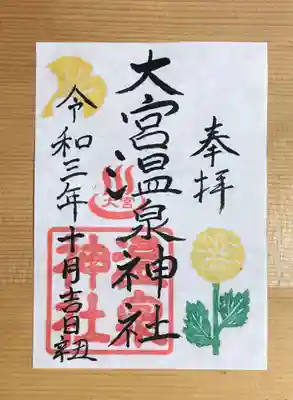 奉拝
大宮温泉神社
令和三年十月吉日
大宮